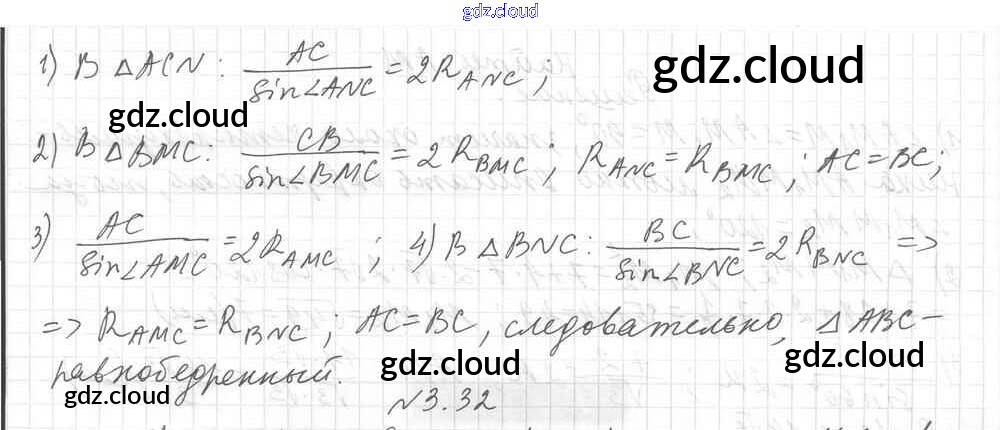 gdz.cloud
1) В △ACN: AC/sin∠ANC = 2R_ANC; gdz.cloud
gdz.cloud
2) В △BMC: CB/sin∠BMC = 2R_BMC; R_ANC = R_BMC; AC = BC;
3) AC/sin∠AMC = 2R_AMC; 4) В △BNC: BC/sin∠BNC = 2R_BNC =>
=> R_AMC = R_BNC; AC = BC, следовательно, △ABC –
gdz.cloud gdz.cloud
равнобедренный.
gdz.cloud
№3.32